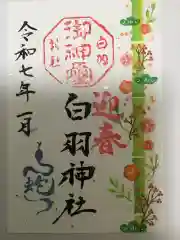 迎春
白羽
御神霊
お社
白羽神社
令和七年一月